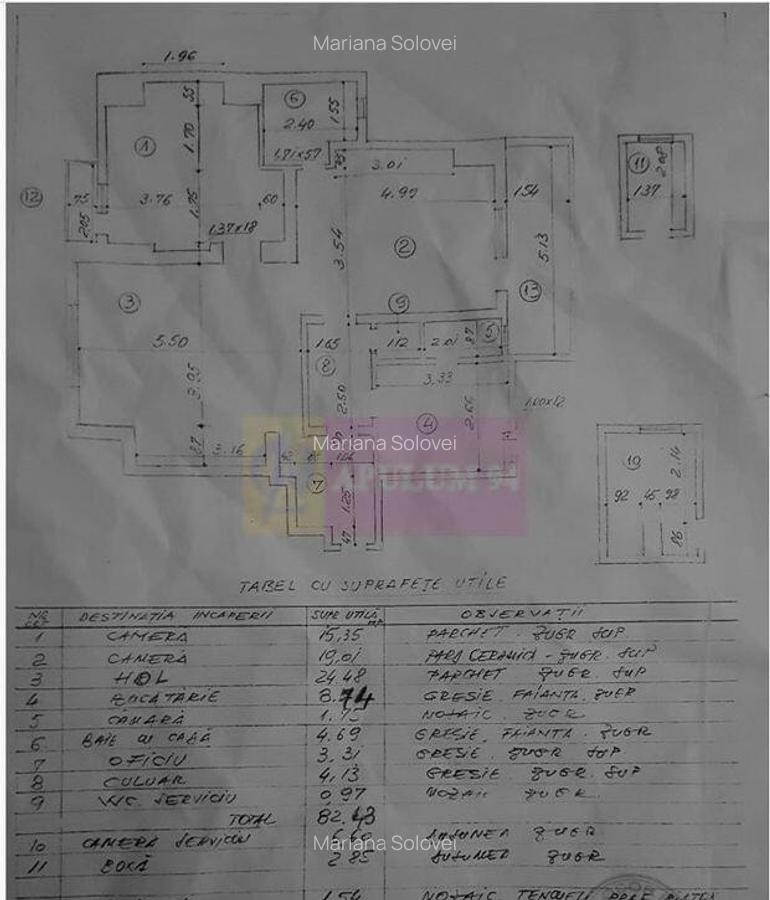 Mariana Solovei
1.96
6
55
1.55
2.40
1
1.70
1.71x57
3.01
11
2.08
12
75
3.76
1.75
60
4.99
1.54
1.37
2.05
1.37x18
3.54
2
5.13
13
3
9
5
5.50
1.65
1.12
2.01
87
8
3.33
3.05
2.50
2.66
1.00x12
4
Mariana Solovei
87
3.16
10
2.14
7
APULUM 94
1.25
92
45
98
47
86
TABEL CU SUPRAFEȚE UTILE
DESTINAȚIA INCAPERII SUPR UTILĂ MP OBSERVAȚII
1 CAMERA 15,35 PARCHET - ZUGR SUP
2 CAMERA 19,01 PARCHET - ZUGR. SUP
3 HOL 24,48 PARCHET ZUGR. SUP
4 BUCATĂRIE 8.74 GRESIE FAIANTA, ZUGR
5 CAMARA MOZAIC ZUGR
6 BAIE 4.69 GRESIE, FAIANTA. ZUGR
7 OFICIU 3,31 GRESIE. ZUGR SUP
8 CULUAR 4,13 GRESIE ZUGR. SUP
9 WC. SERVICIU 0,97 MOZAIC ZUGR.
TOTAL 82.43
10 CAMERA SERVICIU ZUGR
Mariana Solovei
11 BOXĂ 2.85 ZUGR
1.54 MOZAIC